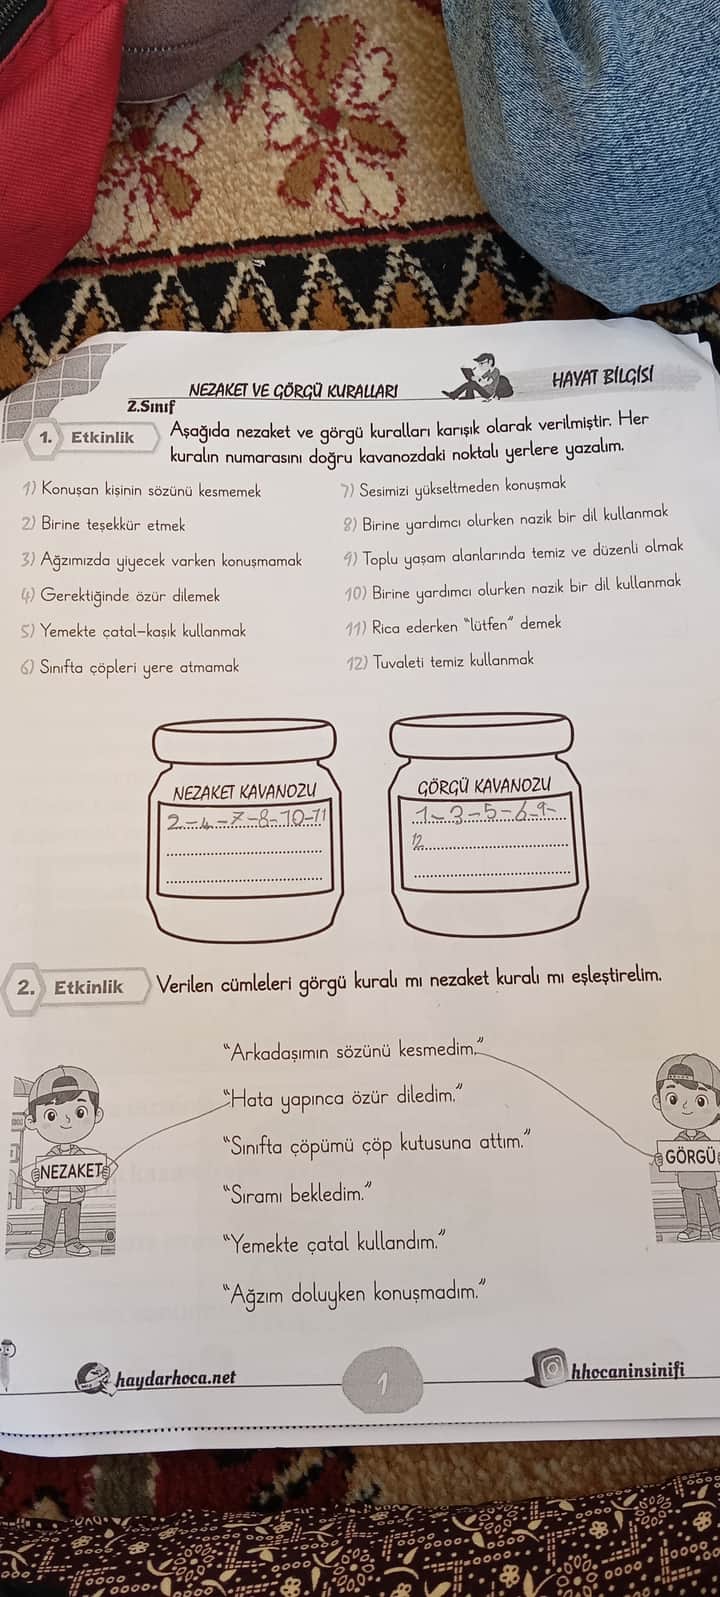 NEZAKET VE GÖRGÜ KURALLARI
HAYAT BİLGİSİ
2.Sınıf
1. Etkinlik
Aşağıda nezaket ve görgü kuralları karışık olarak verilmiştir. Her
kuralın numarasını doğru kavanozdaki noktalı yerlere yazalım.
1) Konuşan kişinin sözünü kesmemek
2) Birine teşekkür etmek
3) Ağzımızda yiyecek varken konuşmamak
4) Gerektiğinde özür dilemek
5) Yemekte çatal-kaşık kullanmak
6) Sınıfta çöpleri yere atmamak
7) Sesimizi yükseltmeden konuşmak
8) Birine yardımcı olurken nazik bir dil kullanmak
9) Toplu yaşam alanlarında temiz ve düzenli olmak
10) Birine yardımcı olurken nazik bir dil kullanmak
11) Rica ederken "lütfen" demek
12) Tuvaleti temiz kullanmak
NEZAKET KAVANOZU
2-4-7-8-10-11
GÖRGÜ KAVANOZU
1-3-5-6-9-
12
2. Etkinlik
Verilen cümleleri görgü kuralı mı nezaket kuralı mı eşleştirelim.
"Arkadaşımın sözünü kesmedim."
"Hata yapınca özür diledim."
"Sınıfta çöpümü çöp kutusuna attım."
"Sıramı bekledim."
"Yemekte çatal kullandım."
"Ağzım doluyken konuşmadım."
NEZAKET
GÖRGÜ
haydarhoca.net
1
hhocaninsinifi